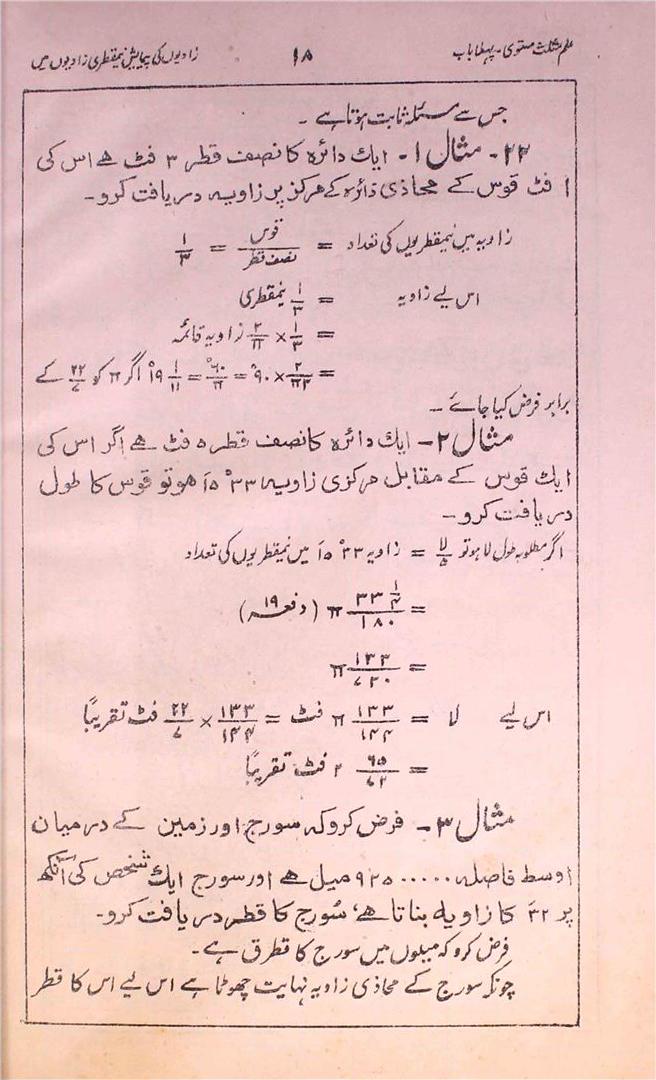 علم مثلث مستوی۔ پہلا باب ۱۸ زاویوں کی پیمایش نیمقطری زاویوں میں
جس سے مسئلہ ثابت ہوتا ہے ۔
۲۲۔ مثال ۱۔ ایک دائرہ کا نصف قطر ۳ فٹ ہے اس کی
۱ فٹ قوس کے محاذی دائرہ کے مرکز پر زاویہ دریافت کرو۔
زاویہ میں نیمقطریوں کی تعداد = قوس / نصف قطر = ۱/۳
اس لیے زاویہ = ۱/۳ نیمقطری
= ۱/۳ × ۲/π زاویہ قائمہ
= ۲/۳π × ۹۰° = ۶۰°/π = ۱۹ ۱/۱۱° اگر π کو ۲۲/۷ کے
برابر فرض کیا جائے ۔
مثال ۲۔ ایک دائرہ کا نصف قطر ۵ فٹ ہے اگر اس کی
ایک قوس کے مقابل مرکزی زاویہ ۳۳° ۱۵َ ہو تو قوس کا طول
دریافت کرو۔
اگر مطلوبہ طول لا ہو تو لا/۵ = زاویہ ۳۳° ۱۵َ میں نیمقطریوں کی تعداد
= ۳۳ ۱/۴ / ۱۸۰ π (دفعہ ۱۹)
= ۱۳۳/۷۲۰ π
اس لیے لا = ۱۳۳/۱۴۴ π فٹ = ۱۳۳/۱۴۴ × ۲۲/۷ فٹ تقریبًا
= ۲ ۶۵/۷۲ فٹ تقریبًا
مثال ۳۔ فرض کرو کہ سورج اور زمین کے درمیان
اوسط فاصلہ ۹۲۵۰۰۰۰۰ میل ہے اور سورج ایک شخص کی آنکھ
پر ۳۲َ کا زاویہ بناتا ہے، سُورج کا قطر دریافت کرو۔
فرض کرو کہ میلوں میں سورج کا قطر ق ہے۔
چونکہ سورج کے محاذی زاویہ نہایت چھوٹا ہے اس لیے اس کا قطر